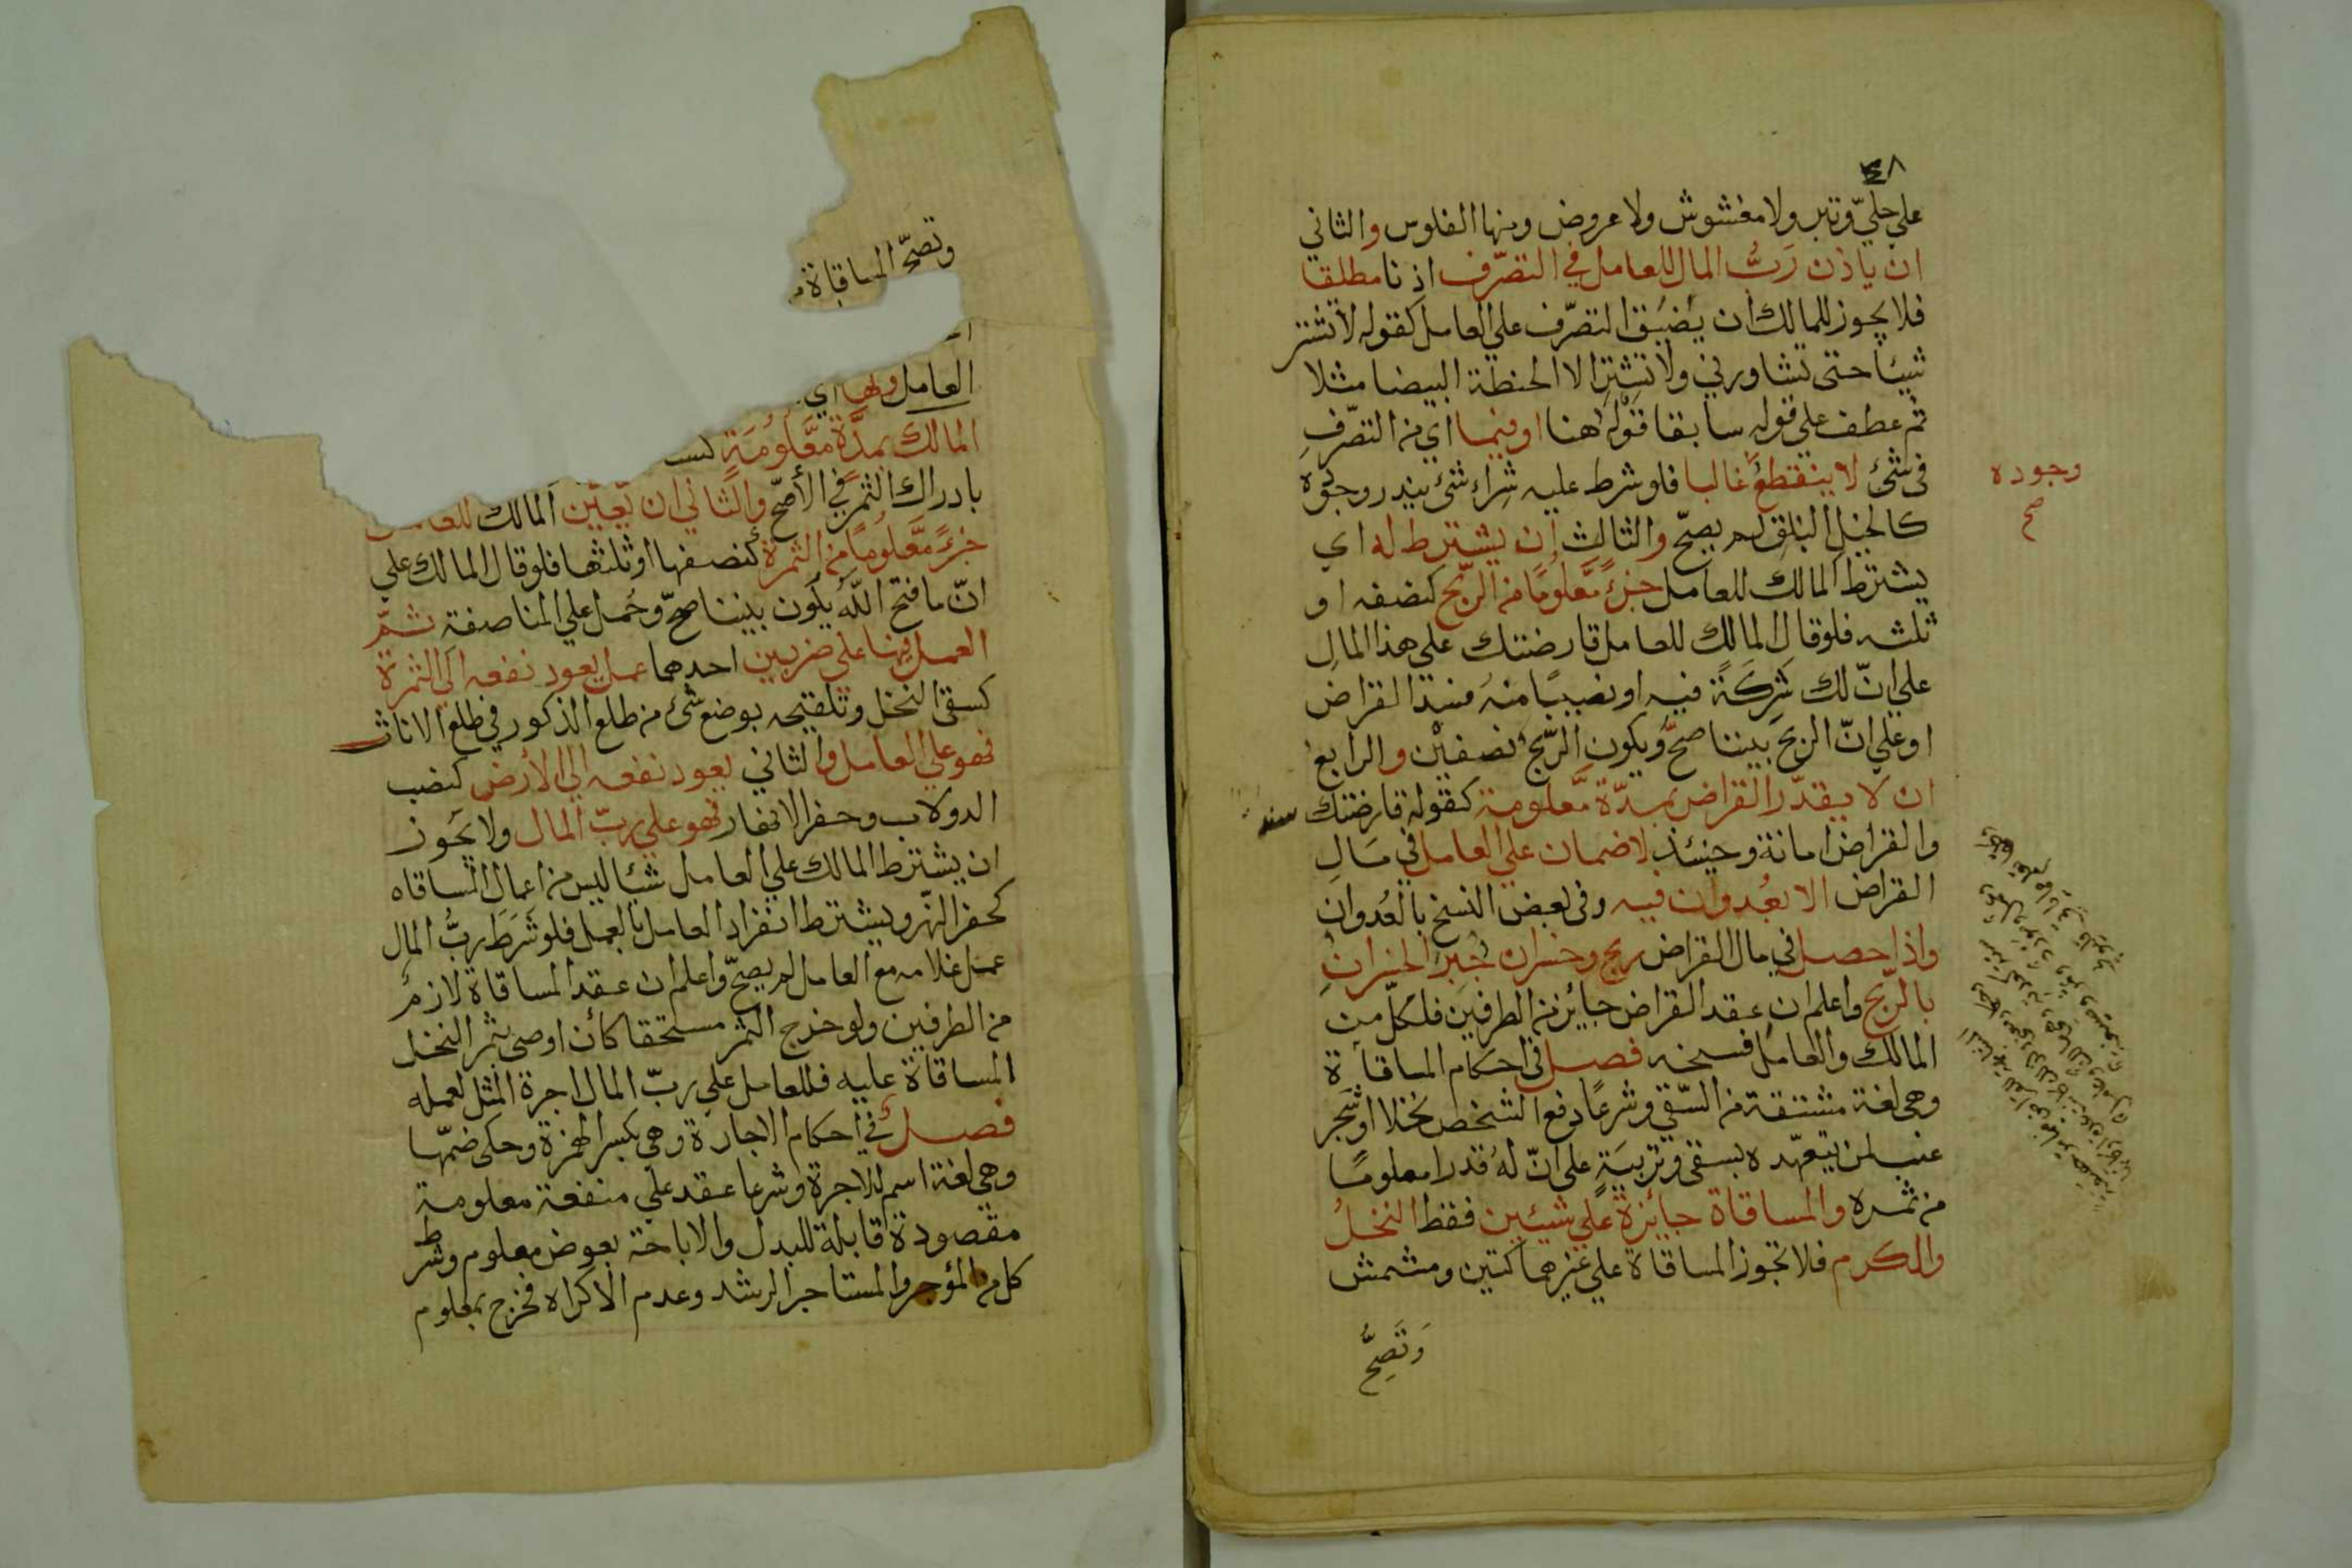 ٤٨
علي حليّ وتبر ولا مغشوش ولا عروض ومنها الفلوس والثاني
ان ياذن رَبُّ المال للعامل في التصرّف اذنا مطلقا
فلا يجوز للمالك ان يضيّق التصرّف علي العامل كقوله لا تشتر
شيئا حتى تشاورني ولا تشتر الا الحنطة البيضا مثلا
ثم عطف علي قوله سابقا قوله هنا او فيما اي من التصرّف
فى شئ لا ينقطع غالبا فلو شرط عليه شراء شئ يندر وجوده
كالخيل البلق لم يصحّ والثالث ان يشترط له اي
يشترط المالك للعامل جزءً معلومًا من الرّبح كنصفه او
ثلثه فلو قال المالك للعامل قارضتك على هذا المال
علي انّ لك شركةً فيه او نصيبًا منه فسد القراض
او علي انّ الربح بيننا صحّ ويكون الرّبح نصفين والرابع
ان لا يقدّر القراض بمدّة معلومة كقوله قارضتك سنه
والقراض امانة وحينئذ لا ضمان علي العامل في مال
القراض الا بعُدوان فيه وفى بعض النسخ بالعُدوان
واذا حصل في مال القراض ربح وخسران جُبِرَ الخسرانُ
بالرّبح واعلم ان عقد القراض جائز من الطرفين فلكلّ من
المالك والعامل فسخه فصل فى احكام المساقاة
وهى لغة مشتقة من السّقي وشرعًا دفع الشخص نخلا او شجر
عنب لمن يتعهّده بسقى وتربيةٍ على انّ له قدرا معلومًا
من ثمره والمساقاة جائزة علي شيئين فقط النخلُ
والكرم فلا تجوز المساقاة علي غيرهما كتين ومشمش
وَتَصِحُّ
وجوده
صح
وتصحّ المساقاة م
العامل ولها اي
المالك بمدّة معلومة كسـ
بادراك الثمر في الأصحّ والثاني ان يُعيّن المالك للعامل
جزءً معلُومًا من الثمرة كنصفها او ثلثها فلو قال المالك علي
انّ ما فتح اللّٰه يكون بيننا صحّ وحُمل علي المناصفة ثمّ
العمل فيها علي ضربين احدهما عمل يعود نفعه الي الثمرة
كسقى النخل وتلقيحه بوضع شئ من طلع الذكور في طلع الاناث
فهو علي العامل والثاني يعود نفعه الي الأرض كنصب
الدولاب وحفر الانهار فهو علي ربّ المال ولا يَجُوز
ان يشترط المالك علي العامل شيئا ليس من اعمال المساقاه
كحفر النهر ويشترط انفراد العامل بالعمل فلو شَرَطَ ربُّ المال
عمل غلامه مع العامل لم يصحّ واعلم ان عقد المساقاة لازم
من الطرفين ولو خرج الثمر مستحقا كأن اوصى بثمر النخل
المساقاة عليه فللعامل علي ربّ المال اجرة المثل لعمله
فصلٌ في احكام الاجارة وهي بكسر الهمزة وحكى ضمّها
وهي لغة اسم للاجرة وشرعا عقد علي منفعة معلومة
مقصودة قابلة للبدل والاباحة بعوض معلوم وشرط
كل من المؤجر والمستاجر الرشد وعدم الاكراه فخرج بمعلوم